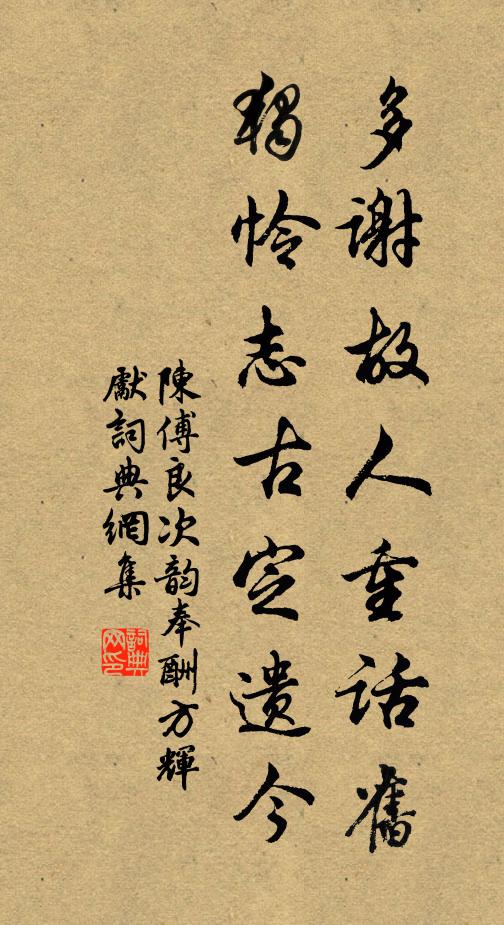 多谢故人重话舊
独怜志古定遗今
陳傅良次韵奉酬方輝
獻詞典網集
詞典网印